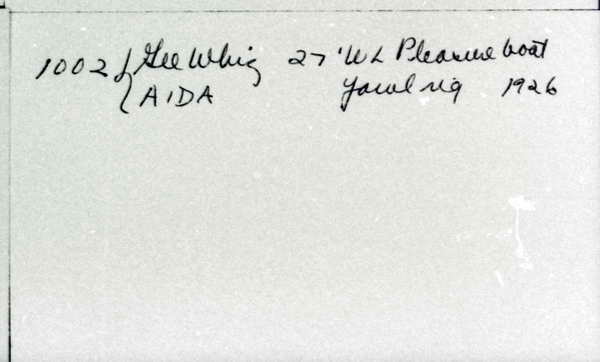 1002 { Gee Whiz 27' WL Pleasure boat
AIDA Yawl rig 1926